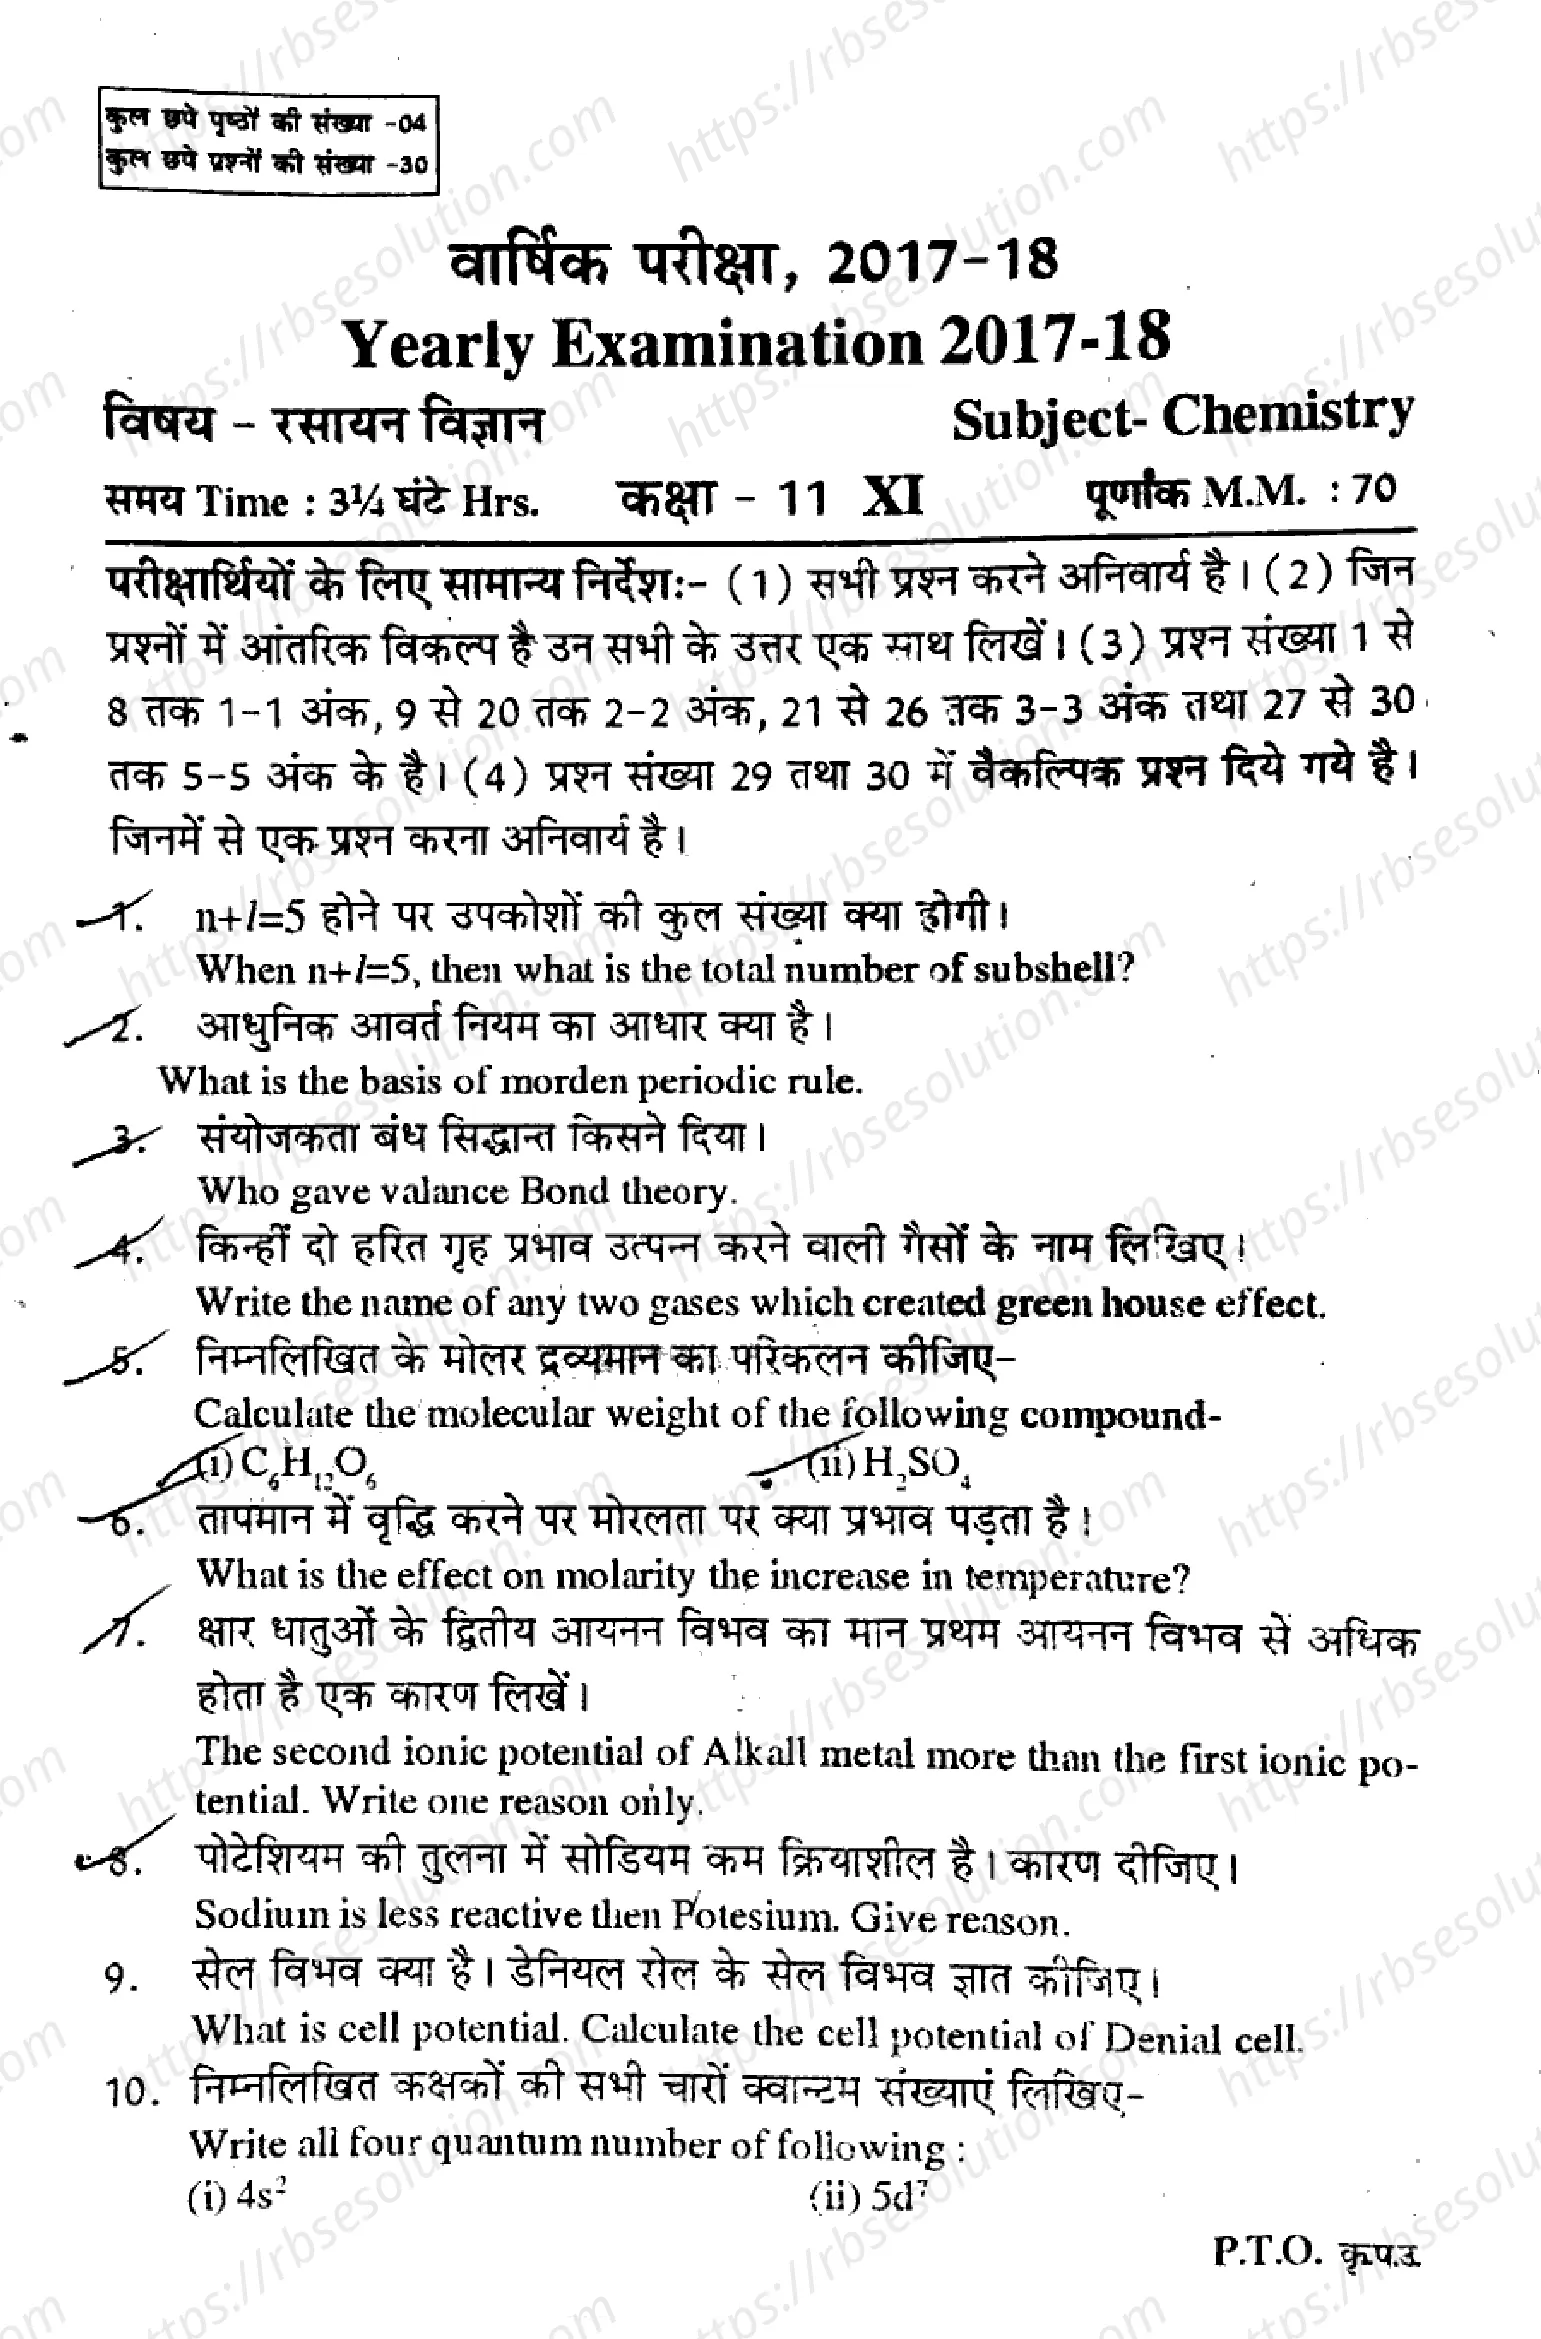 कुल छपे पृष्ठों की संख्या -04
कुल छपे प्रश्नों की संख्या -30
वार्षिक परीक्षा, 2017-18
Yearly Examination 2017-18
विषय - रसायन विज्ञान Subject- Chemistry
समय Time : 3¼ घंटे Hrs. कक्षा - 11 XI पूर्णांक M.M. : 70
परीक्षार्थियों के लिए सामान्य निर्देशः- (1) सभी प्रश्न करने अनिवार्य है। (2) जिन
प्रश्नों में आंतरिक विकल्प है उन सभी के उत्तर एक साथ लिखें। (3) प्रश्न संख्या 1 से
8 तक 1-1 अंक, 9 से 20 तक 2-2 अंक, 21 से 26 तक 3-3 अंक तथा 27 से 30
तक 5-5 अंक के है। (4) प्रश्न संख्या 29 तथा 30 में वैकल्पिक प्रश्न दिये गये है।
जिनमें से एक प्रश्न करना अनिवार्य है।
1. n+l=5 होने पर उपकोशों की कुल संख्या क्या होगी।
When n+l=5, then what is the total number of subshell?
2. आधुनिक आवर्त नियम का आधार क्या है।
What is the basis of morden periodic rule.
3. संयोजकता बंध सिद्धान्त किसने दिया।
Who gave valance Bond theory.
4. किन्हीं दो हरित गृह प्रभाव उत्पन्न करने वाली गैसों के नाम लिखिए।
Write the name of any two gases which created green house effect.
5. निम्नलिखित के मोलर द्रव्यमान का परिकलन कीजिए-
Calculate the molecular weight of the following compound-
(i) C₆H₁₂O₆ (ii) H₂SO₄
6. तापमान में वृद्धि करने पर मोरलता पर क्या प्रभाव पड़ता है।
What is the effect on molarity the increase in temperature?
7. क्षार धातुओं के द्वितीय आयनन विभव का मान प्रथम आयनन विभव से अधिक
होता है एक कारण लिखें।
The second ionic potential of Alkall metal more than the first ionic po-
tential. Write one reason only.
8. पोटेशियम की तुलना में सोडियम कम क्रियाशील है। कारण दीजिए।
Sodium is less reactive then Potesium. Give reason.
9. सेल विभव क्या है। डेनियल सेल के सेल विभव ज्ञात कीजिए।
What is cell potential. Calculate the cell potential of Denial cell.
10. निम्नलिखित कक्षकों की सभी चारों क्वान्टम संख्याएं लिखिए-
Write all four quantum number of following :
(i) 4s² (ii) 5d⁷
P.T.O. कृ.प.उ.
https://rbsesolution.com